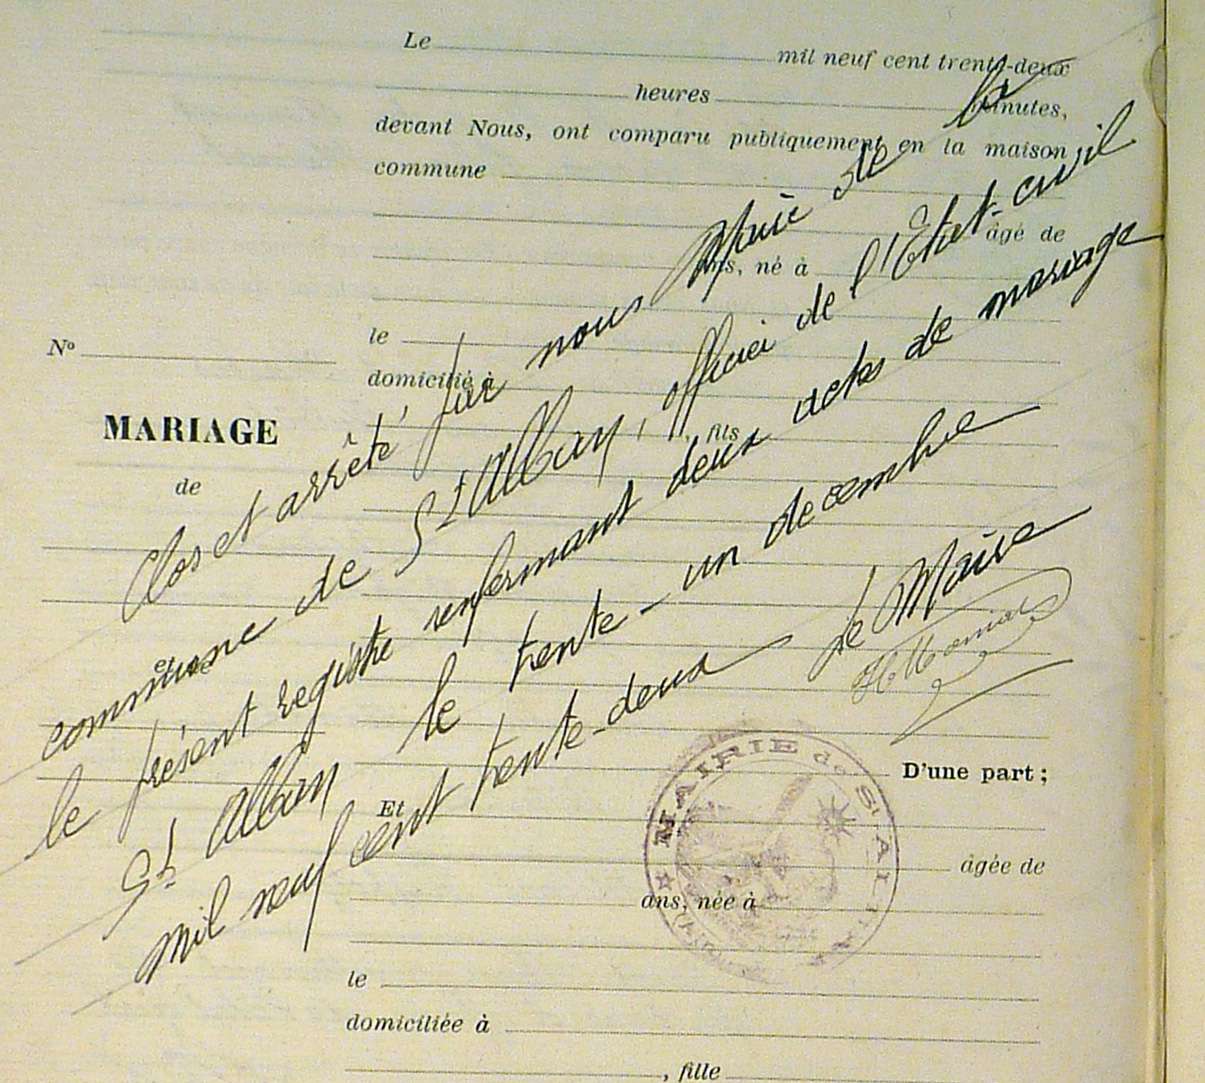 Le mil neuf cent trente-deux
heures minutes,
devant Nous, ont comparu publiquement en la maison
commune
âgé de
ans, né à
le
Nº
domicilié à
MARIAGE
, fils
de
Clos et arrêté par nous Maire de la
commune de St Alban, officier de l'Etat-civil
le présent registre renfermant deux actes de mariage
St Alban le trente-un decembre
mil neuf cent trente-deux
Le Maire
D'une part ;
Et
MAIRIE de St ALBAN
âgée de
ans, née à
le
domiciliée à
, fille